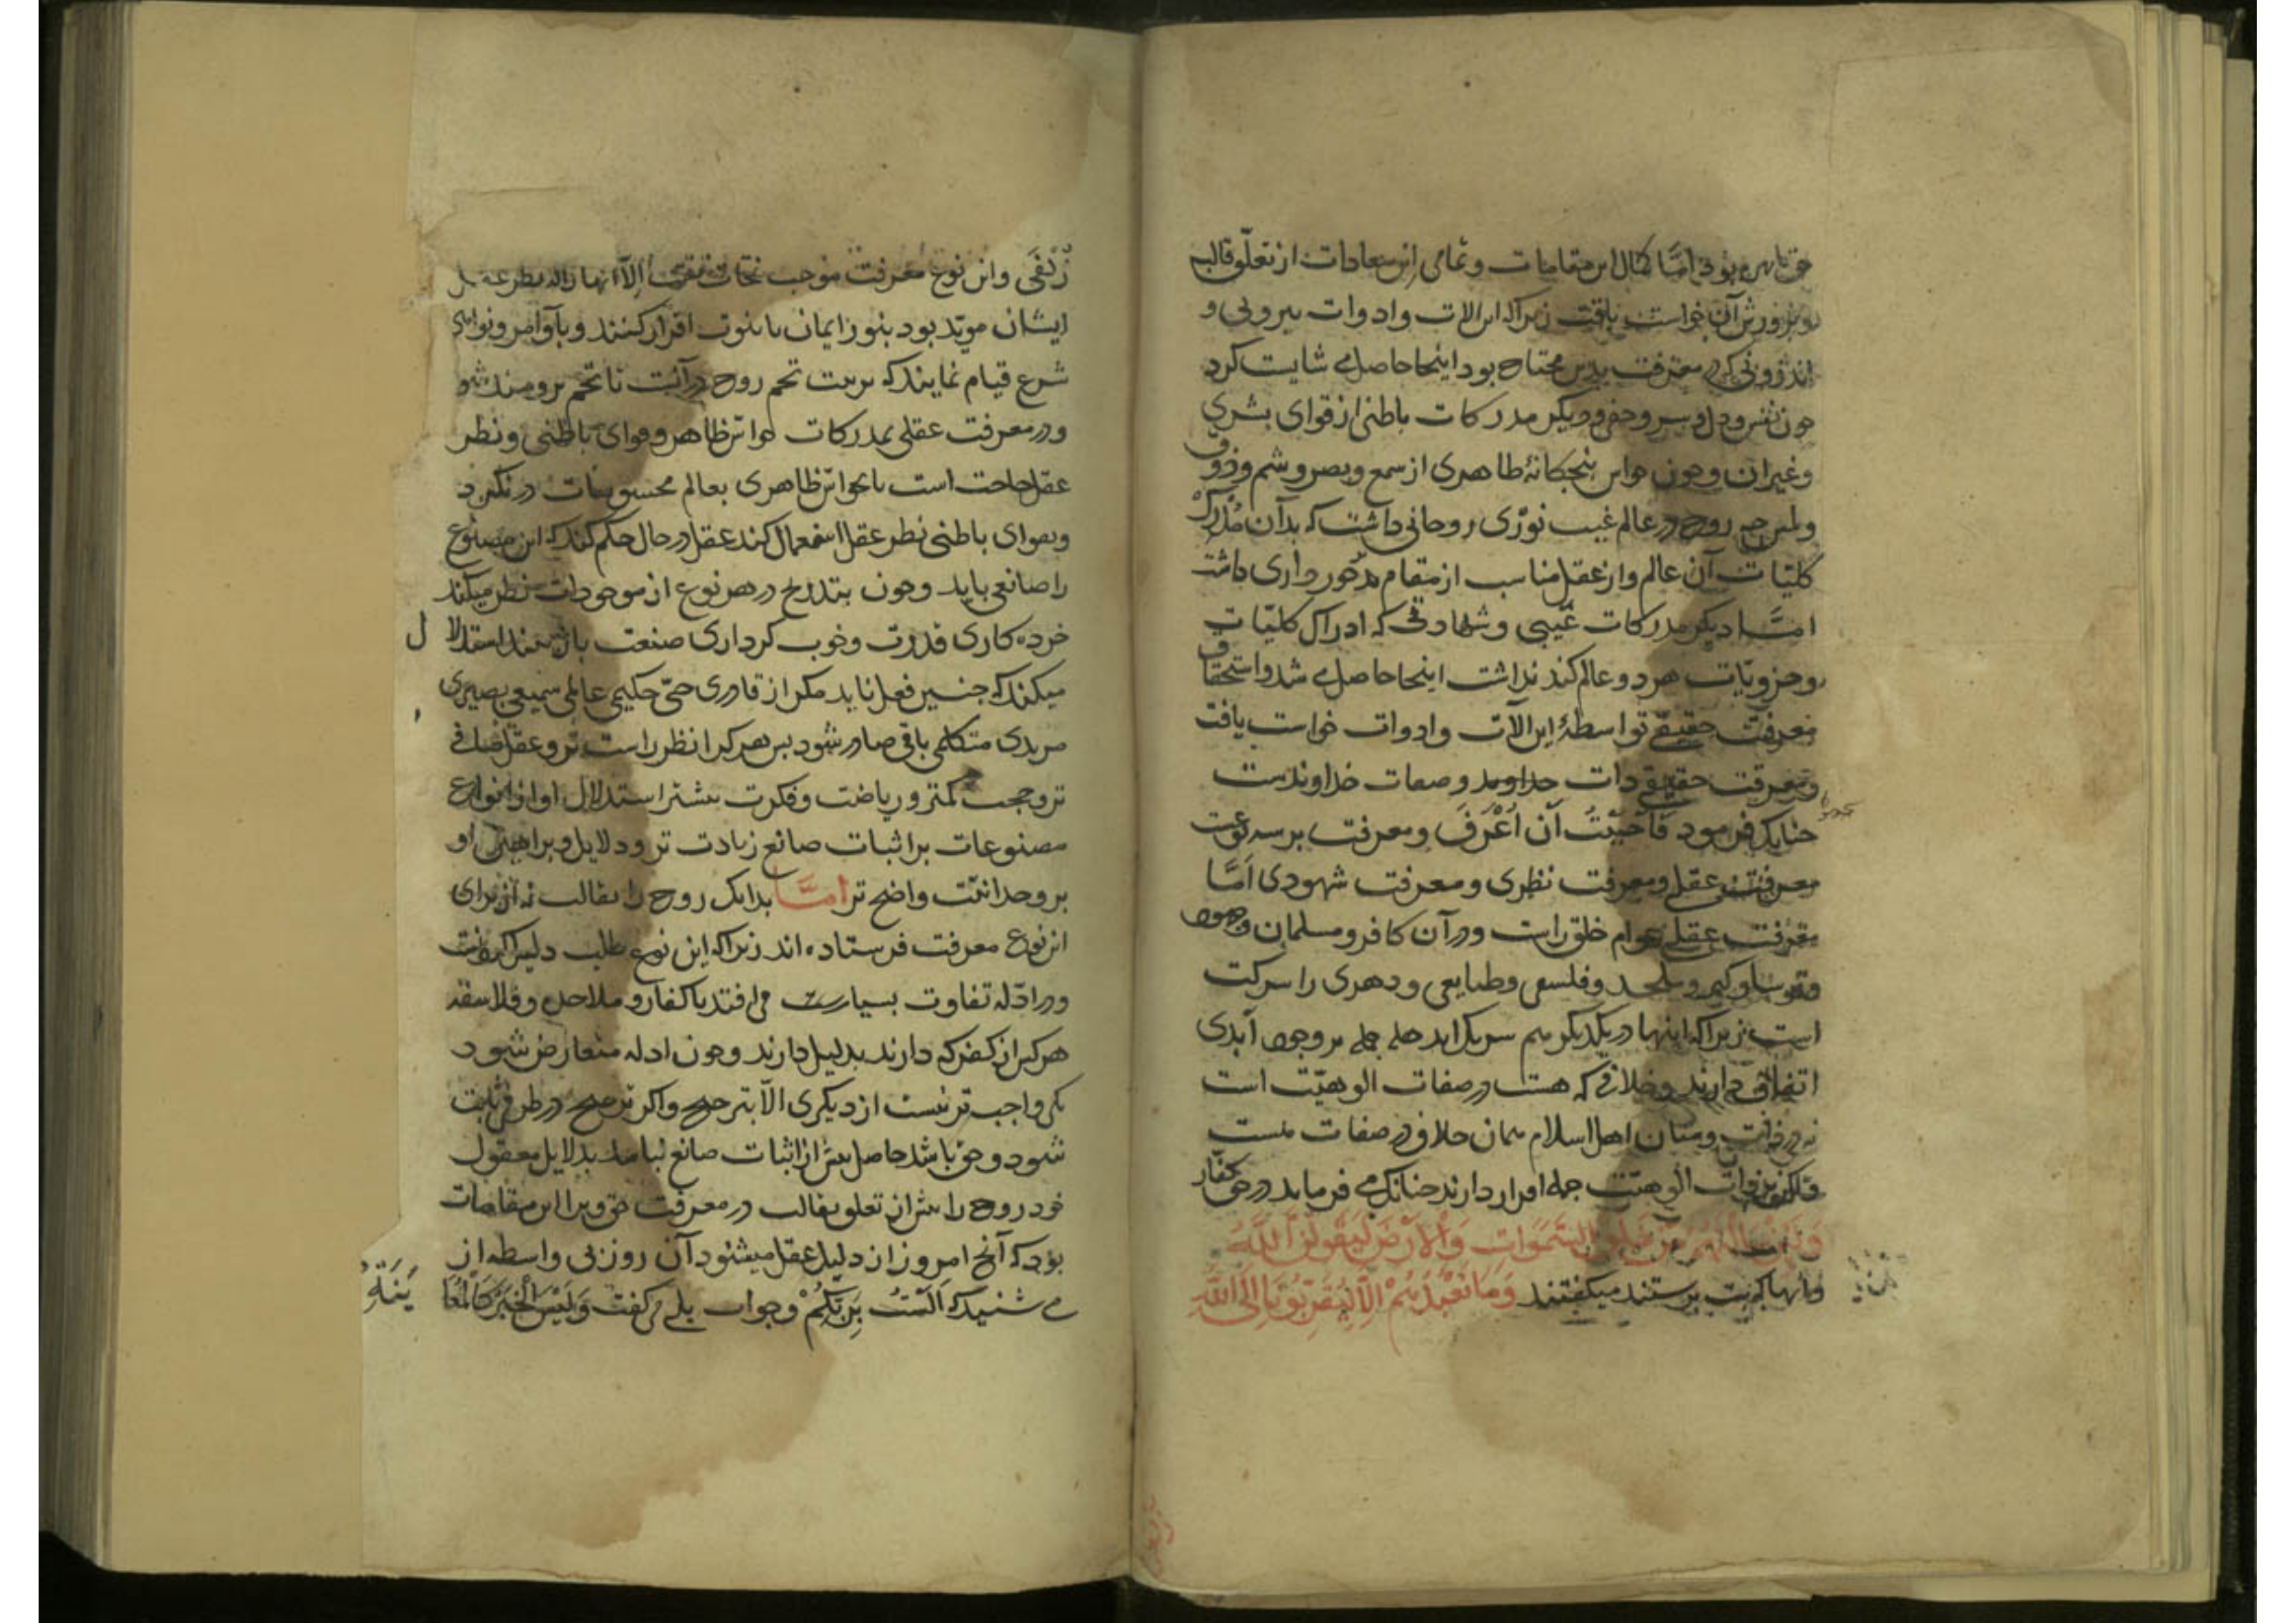 حق بهره بود اما کمال این مقامات و تمامی این سعادات از تعلق قالب
و پرورش آن خواست یافت زیرا که این الات و ادوات بیرونی و
اندرونی که در معرفت بدین محتاج بود اینجا حاصل می شایست کرد
چون نفس و دل و سر و خفی و دیگر مدرکات باطنی از قوای بشری
و غیر آن و چون حواس پنجگانهٔ ظاهری از سمع و بصر و شم و ذوق
و لمس چه روح در عالم غیب نوری روحانی داشت که بدان مدرک
کلیات آن عالم و از عقل مناسب از مقام برخورداری داشت
امّا دیگر مدرکات غیبی و شهادتی که ادراک کلیات
و جزویّات هر دو عالم کند نداشت اینجا حاصل می شد و استحقاق
معرفت حقیقی تواسطهٔ این الآت و ادوات خواست یافت
و معرفت حقیقی ذات خداوند و صفات خداوندیست
چنانک فرمود فَاَحْبَبْتُ اَن اُعْرَفَ و معرفت بر سه نوعست
معرفت عقلی و معرفت نظری و معرفت شهودی اَمّا
معرفت عقلی عوام خلق راست و در آن کافر و مسلمان و جهود
و ترسا و گبر و ملحد و فلسفی و طبایعی و دهری را شرکت
است زیرا که اینها در یکدیگر هم شریک اند جمله بر وجود آبدی
اتفاق دارند و خلافی که هست در صفات الوهیّت است
نه در ذات و میان اهل اسلام همان خلاف در صفات هست
ولکن بر ذات الوهیت جمله اقرار دارند چنانک می فرماید در حق کفّار
وَلَئِنْ سَاَلْتَهُمْ مَنْ خَلَقَ السَّمَوَاتِ وَالْاَرْضَ لَیَقُولُنَّ اللّٰهُ
و آنها که بت پرستند میگفتند وَمَا نَعْبُدُهُمْ اِلَّا لِیُقَرِّبُونَا اِلَی اللّٰهِ
زُلْفَی و این نوع معرفت موجب نجات نیست اِلّا آنها را که نظر عقل
ایشان مویّد بود بنور ایمان تا بنبوت اقرار کنند و بآوامر و نواهی
شرع قیام نمایند که تربیت تخم روح در آنست تا تخم برومند شو
و در معرفت عقلی بمدرکات حواسّ ظاهر و قوای باطنی و نظر
عقل حاجت است تا بحواسّ ظاهری بعالم محسوسات درنگرد
و بقوای باطنی نظر عقل استعمال کند عقل در حال حکم کند که این مصنوع
را صانعی باید و چون بتدریج در هر نوع از موجودات نظر میکند
خرده کاری قدرت و خوب کرداری صنعت باز می‌بیند استدلال
میکند که چنین فعل نیاید مکر از قادری حیّ حکیمی عالمی سمیعی بصیری
مریدی متکلمی باقی صادر شود بس هر کرا نظر راست تر و عقل صافی
تر و حجب کمتر و ریاضت و فکرت بیشتر استدلال او از انواع
مصنوعات بر اثبات صانع زیادت تر و دلایل و براهین او
بر وحدانیّت واضح تر امّا بدانک روح را بقالب نه از برای
این نوع معرفت فرستاده اند زیرا که این نوع طلب دلیل کردنست
و در ادّله تفاوت بسیارست می افتد با کفار و ملاحده و فلاسفه
هر کس از کفر که دارند بدلیل دارند و چون ادله متعارض شود
یکی واجب تر نیست از دیکری الّا بترجیح و اکر ترجیح در طرفی ثابت
شود و حق باشد حاصل بیش از اثبات صانع نباشد بدلایل معقول
خود روح را پیش از تعلق بقالب در معرفت حق ورای این مقامات
بود که آنچ امروز از دلیل عقل میشنود آن روز بی واسطه از
می شنید که اَلَسْتُ بِرَبِّکُمْ و جواب بلی می کفت وَلَیْسَ الْخَبَرُ کَالْمُعَایَنَةِ